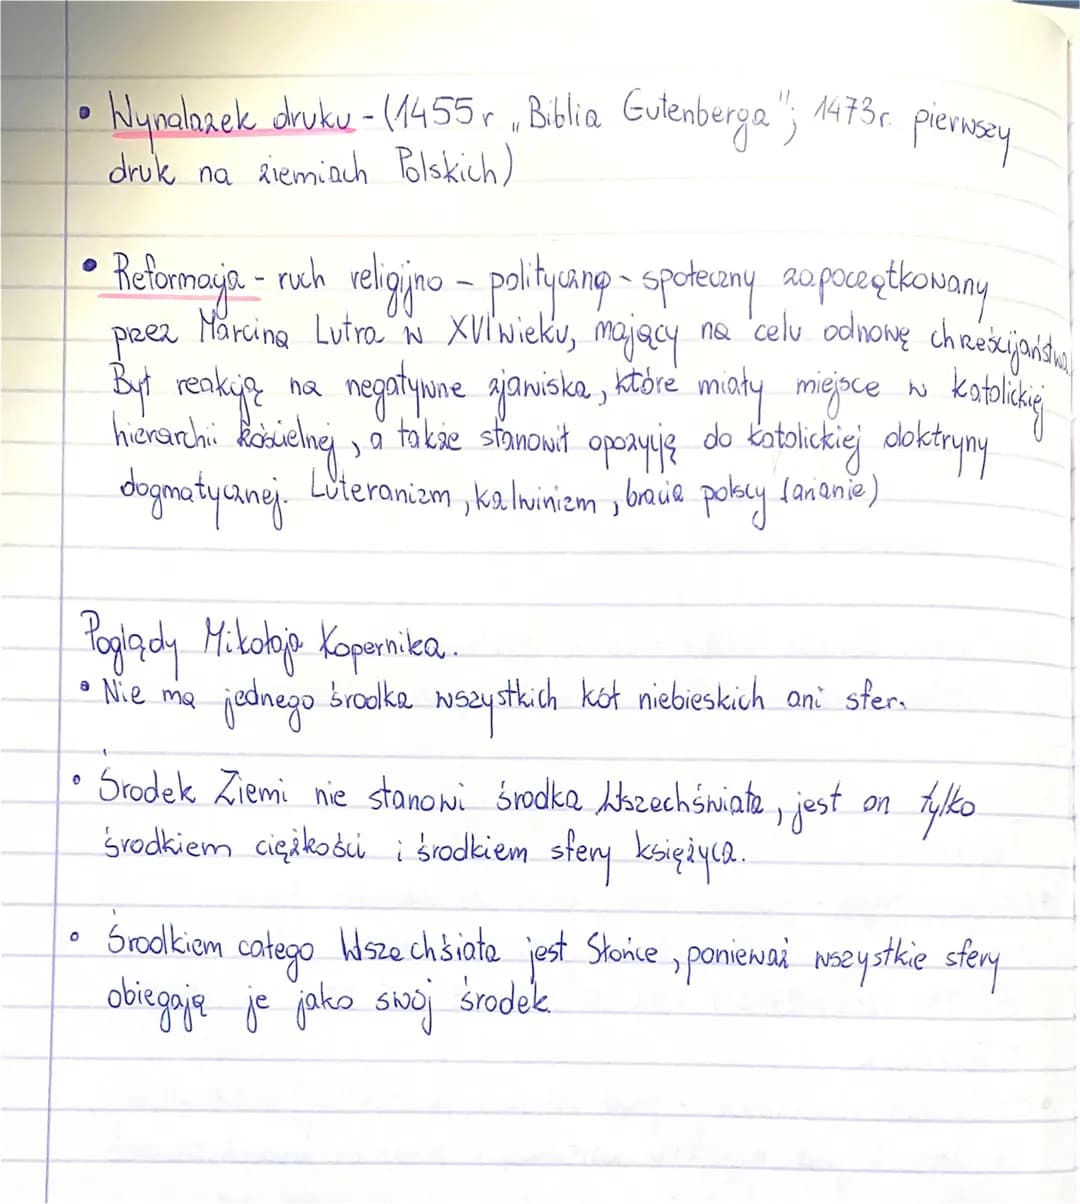 • Wynalazek druku - (1455r „Biblia Gutenberga"; 1473r. pierwszy
druk na ziemiach Polskich)
• Reformacja - ruch religijno - polityczno - społeczny zapoczątkowany
przez Marcina Lutra w XVI wieku, mający na celu odnowę chrześcijaństwa
Był reakcją na negatywne zjawiska, które miały miejsce w katolickiej
hierarchii kościelnej, a także stanowił opozycję do katolickiej doktryny
dogmatycznej. Luteranizm, kalwinizm, bracia polscy (arianie)
Poglądy Mikołaja Kopernika.
• Nie ma jednego środka wszystkich kół niebieskich ani sfer.
• Środek Ziemi nie stanowi środka Wszechświata, jest on tylko
środkiem ciężkości i środkiem sfery księżyca.
• Środkiem całego Wszechśiata jest Słońce, ponieważ wszystkie sfery
obiegają je jako swój środek.